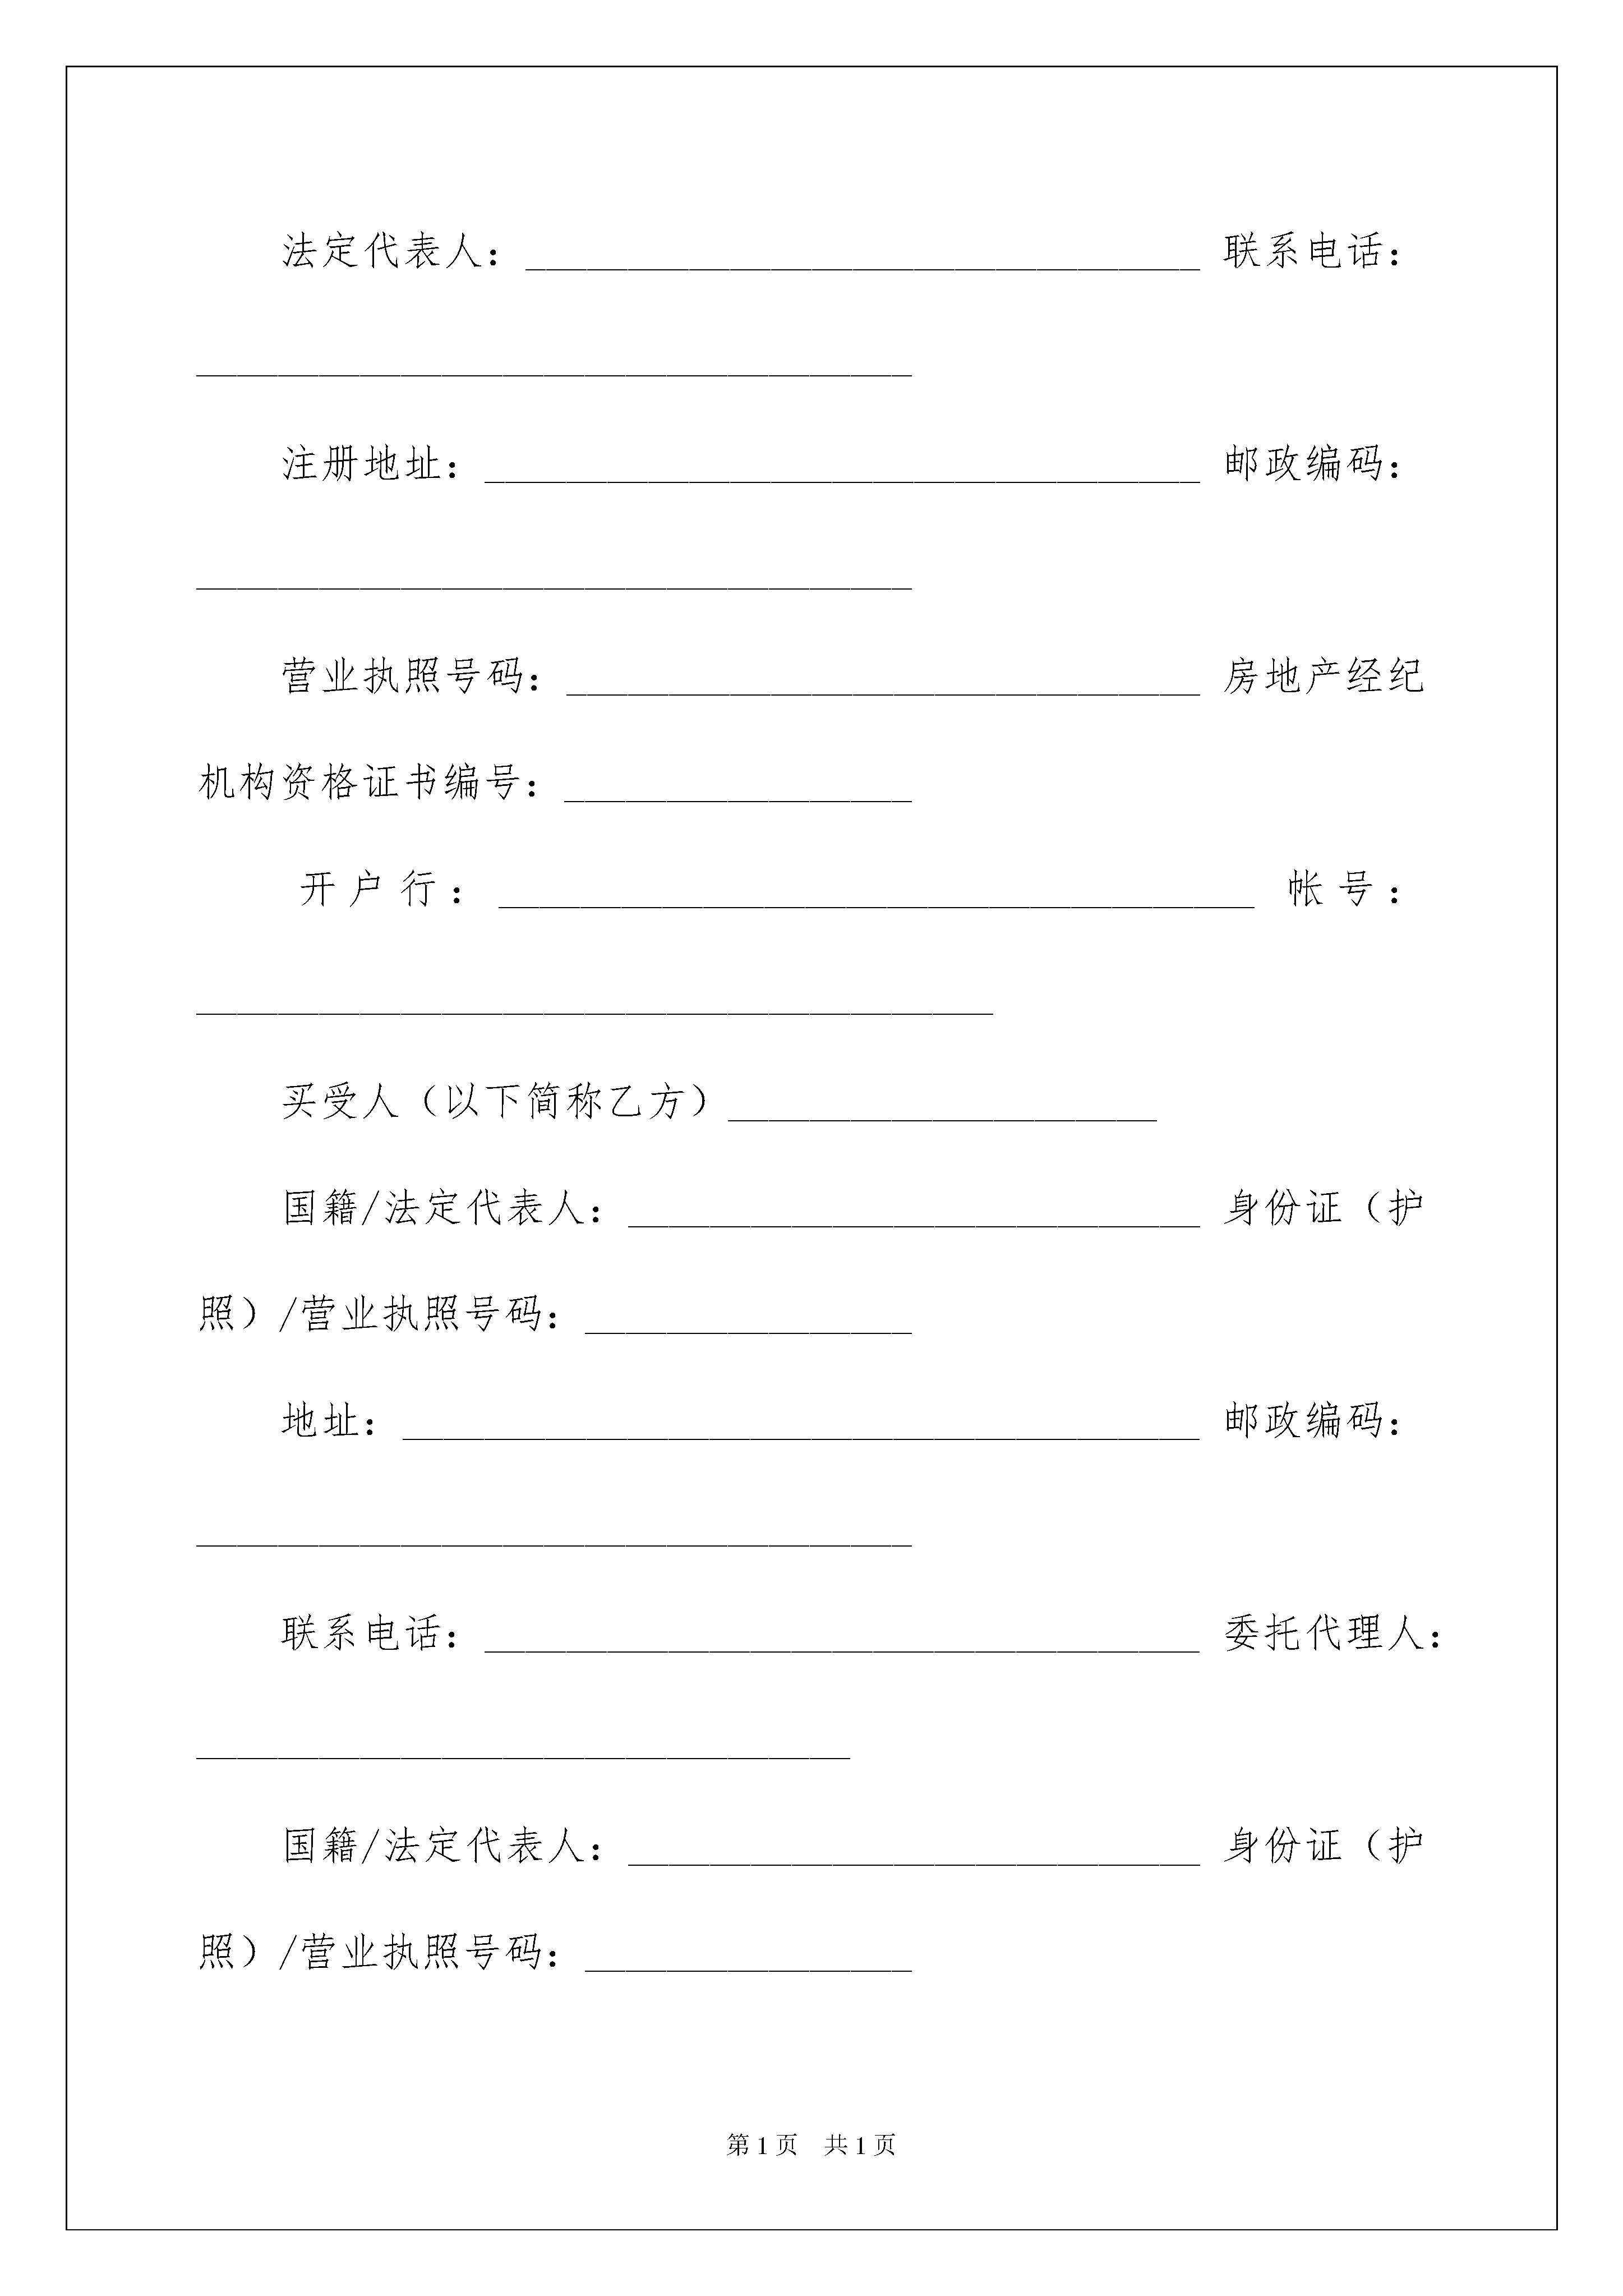 法定代表人：_________________________________ 联系电话：
___________________________________
注册地址：___________________________________ 邮政编码：
___________________________________
营业执照号码：_______________________________ 房地产经纪
机构资格证书编号：_________________
开户行：_____________________________________ 帐号：
_______________________________________
买受人（以下简称乙方）_____________________
国籍/法定代表人：____________________________ 身份证（护
照）/营业执照号码：________________
地址：_______________________________________ 邮政编码：
___________________________________
联系电话：___________________________________ 委托代理人：
________________________________
国籍/法定代表人：____________________________ 身份证（护
照）/营业执照号码：________________
第 1 页 共 1 页